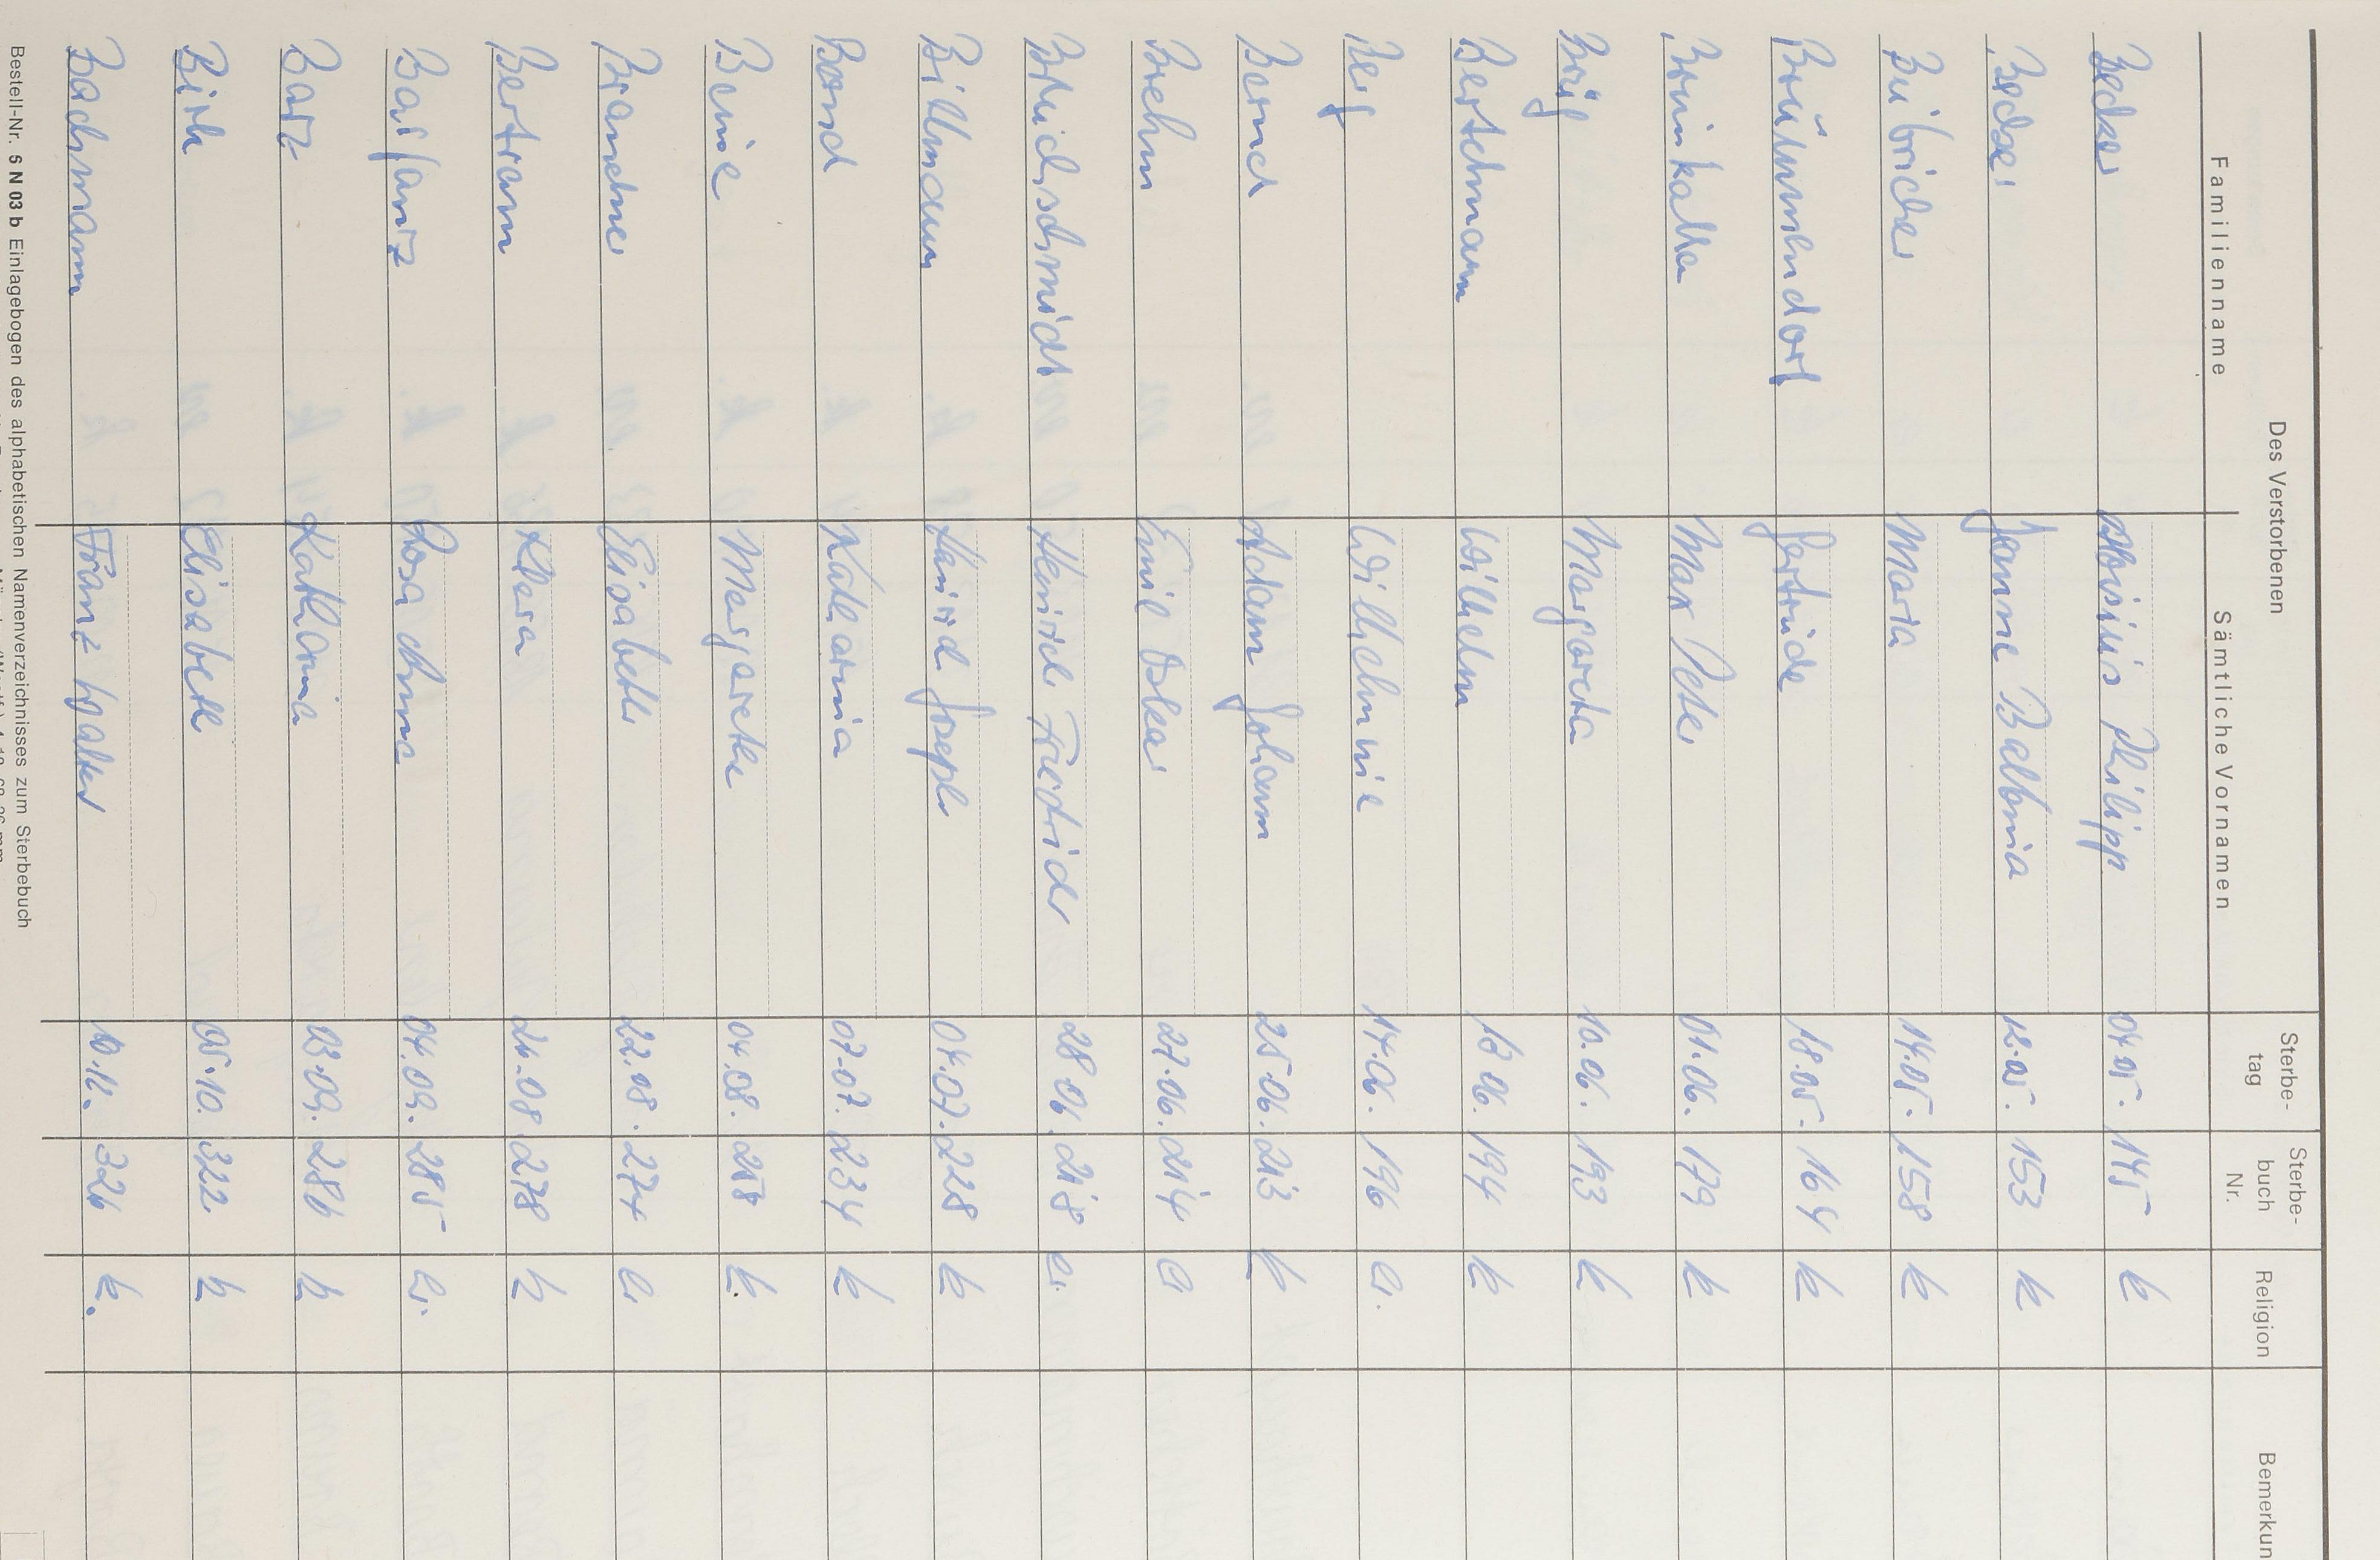 Des Verstorbenen
Familienname Sämtliche Vornamen Sterbe-tag Sterbe-buch Nr. Religion Bemerkun
Becker Philipp 04.05. 145 k
Becker Janne Balbina 12.05. 153 k
Maria 14.05. 158 k
Gertrude 18.05. 164 k
Brinkatte Max Peter 01.06. 179 k
Margareta 10.06. 193 k
Bertchmann Wilhelm 13.06. 194 k
Berg Wilhelmine 17.06. 196 ev.
Bernd Adam Johann 25.06. 213 k
Brehm Emil Oskar 27.06. 214 ev
Bruchschmidt Heinrich Friedrich 28.06. 218 ev.
Billmann Heinrich Joseph 04.07. 228 k
Katharina 07.07. 234 k
Beine Margarethe 04.08. k.
Brandner Elisabeth 22.08. 274 ev
Bertram Klara 26.08 278 k
Rosa Anna 04.09. 285 ev.
Barz Katharina 03.09. 286 k
Birk Elisabeth 05.10. 322 k
Bachmann Franz Walter 326 k.
Bestell-Nr. 6 N 03 b Einlagebogen des alphabetischen Namenverzeichnisses zum Sterbebuch